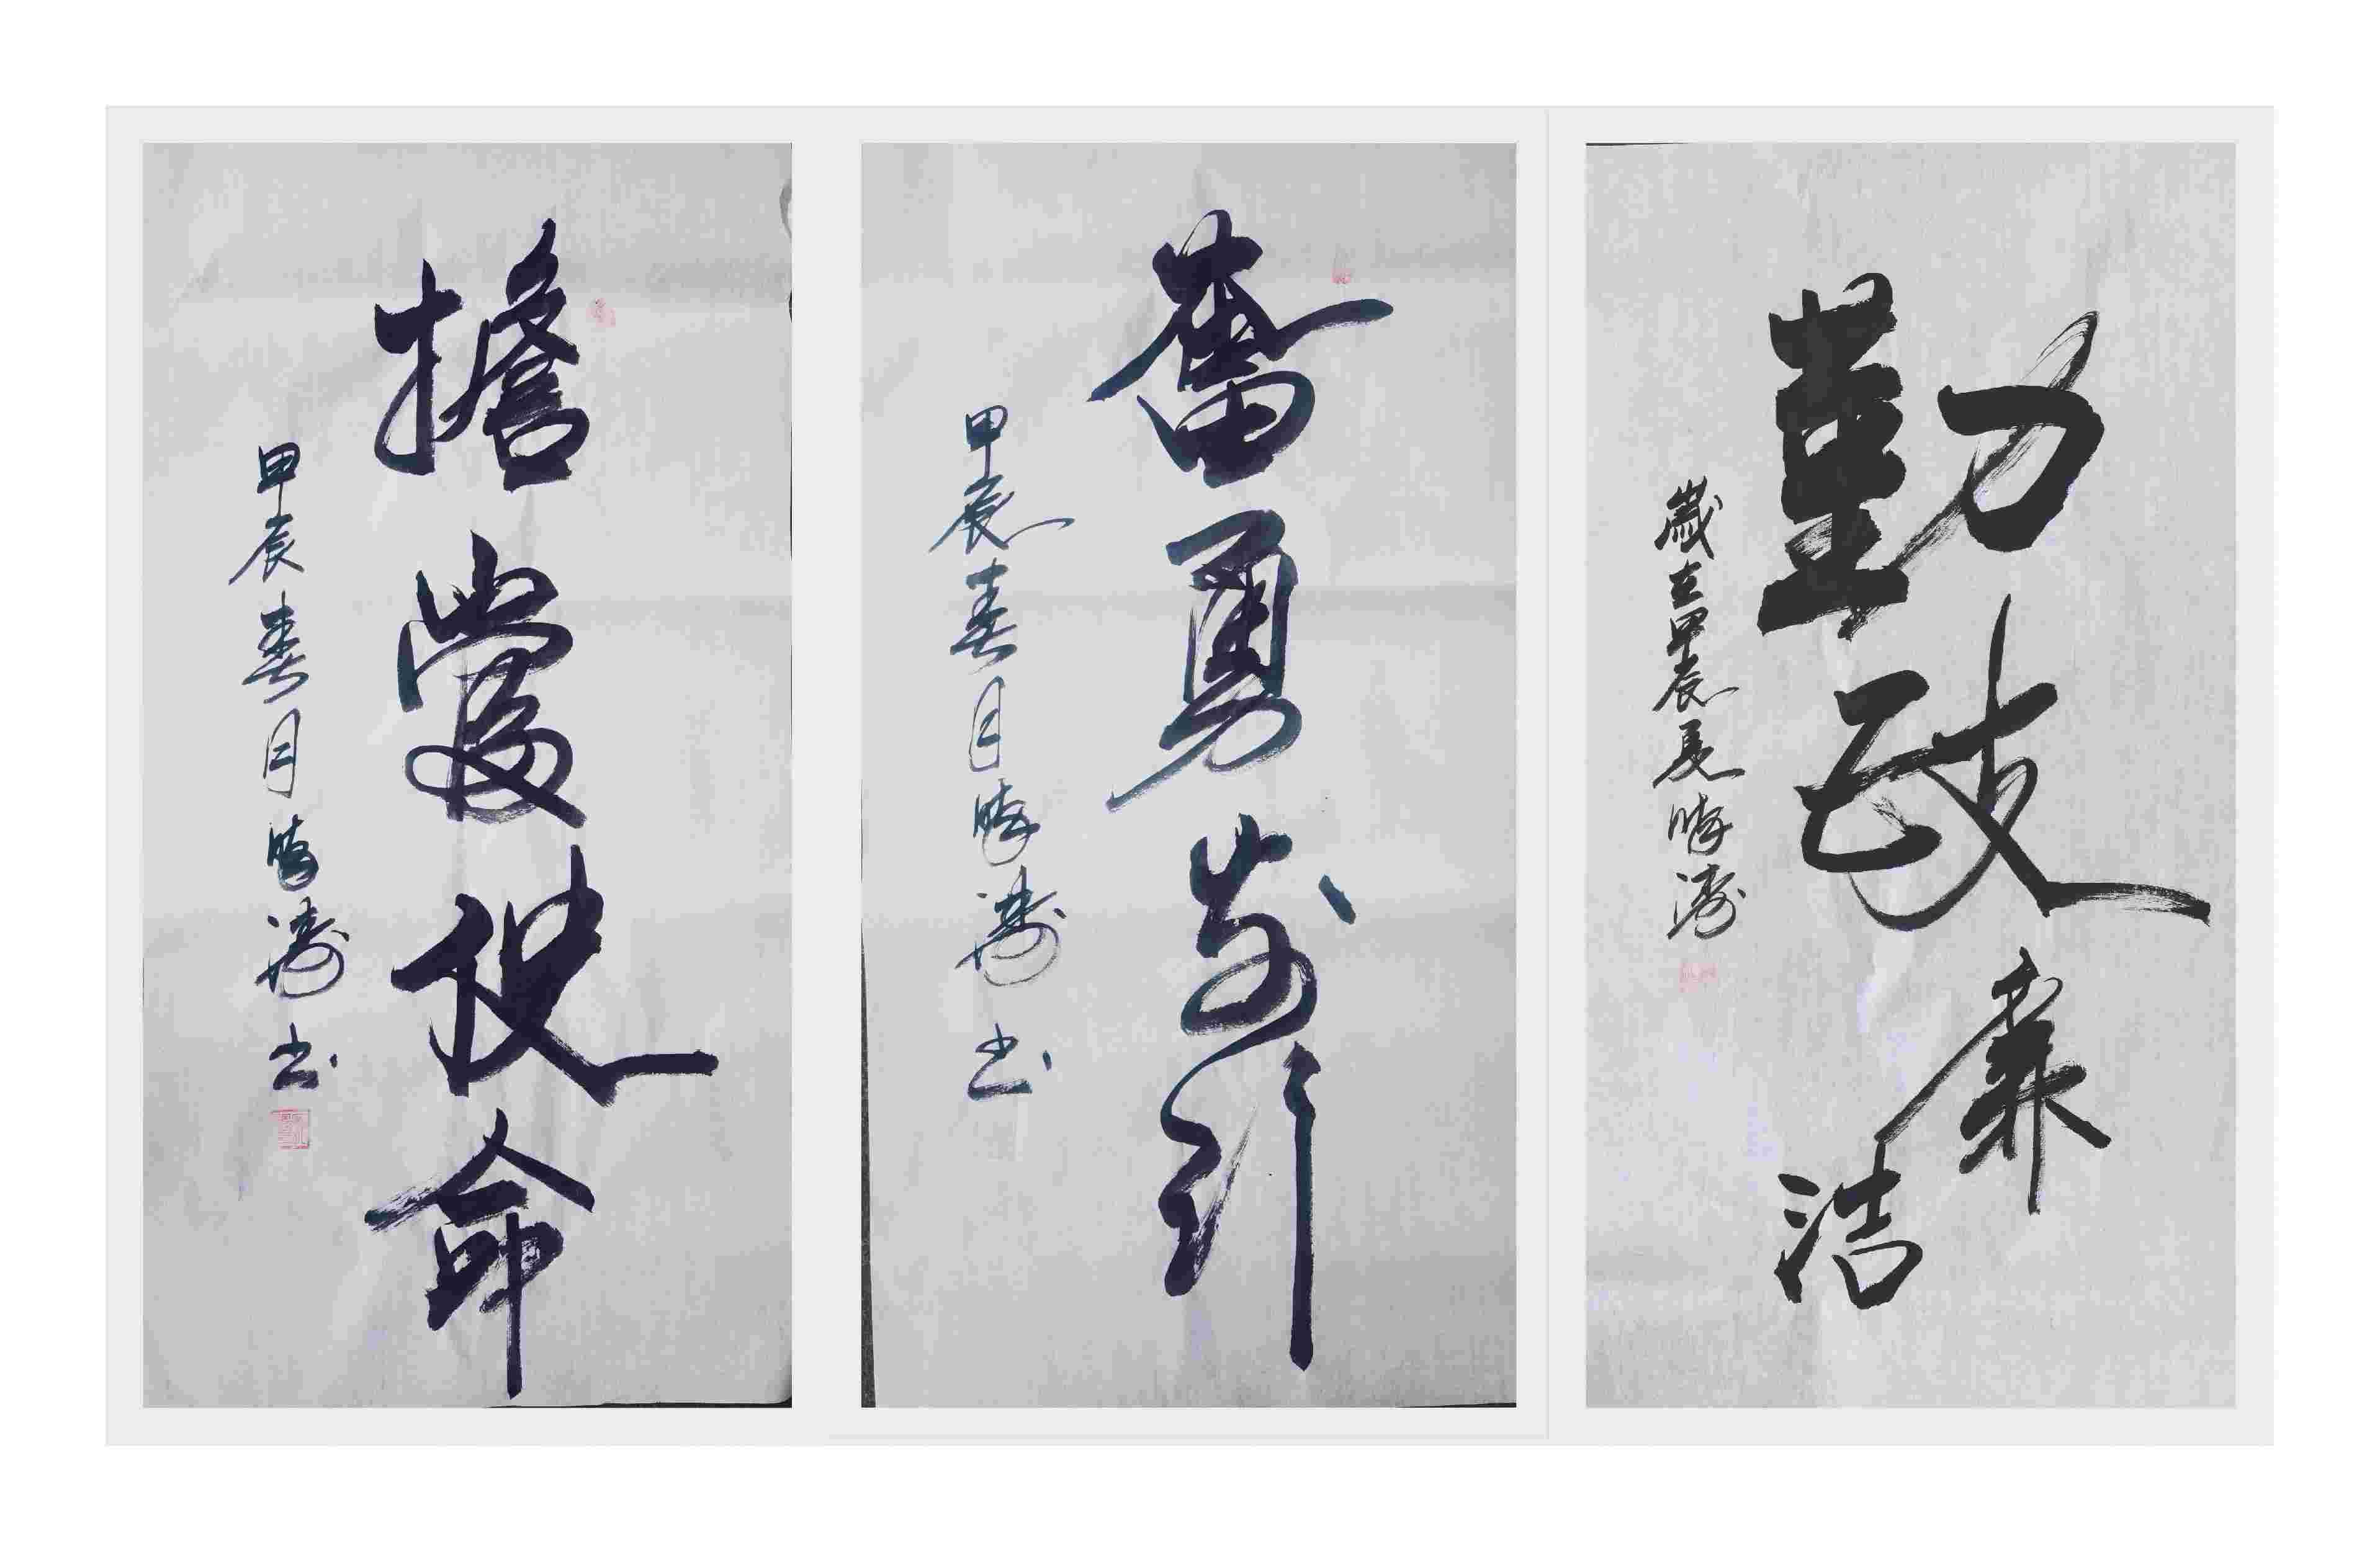 擔當使命
甲辰春月涛书
奮勇前行
甲辰春月涛书
勤政廉洁
歲在甲辰夏涛